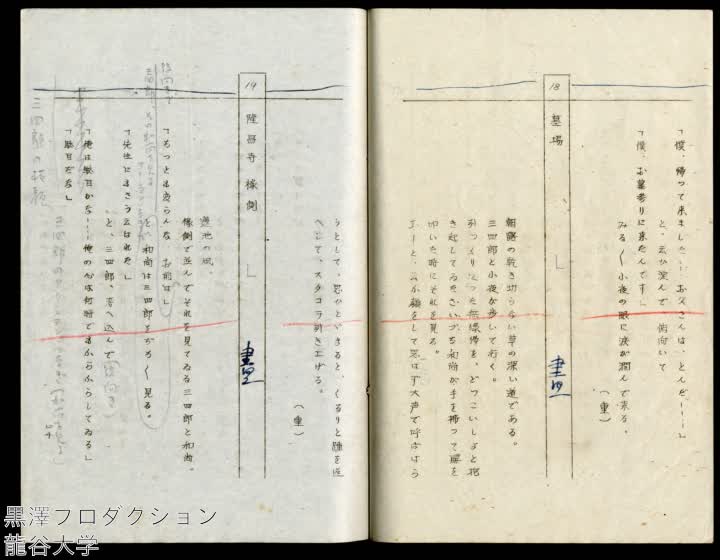 「僕、帰って来ました…お父さんは、とんだ……」
と、云ひ淀んで俯向いて
「僕、お墓参りに来たんです」
みる〱小夜の眼に涙が潤んで来る。
(重)
18
墓場
昼
朝露の乾き切らない草の深い道である。
三四郎と小夜が歩いて行く。
引っくりくった無縁佛を、どっこいしょと抱
き起してゐるさいづち和尚が手を拂って腰を
叩いた時にそれを見る。
し、思はず大声で呼ばはら
うとして、思ひとゞまると、くるりと踵を返
へして、スタコラ引き上げる。
(重)
19
隆昌寺 椽側
昼
蓮池の風。
椽側で並んでそれを見てゐる三四郎と和尚。
「ちっとも変らんな お前は」
と和尚は三四郎をぢろ〱見る。
「先生にもさう云はれた」
と、三四郎、考へ込んで
「俺は駄目かな…俺の心は何時でもからからしてゐる」
「駄目だな」
三四郎の横顔
黒澤プロダクション
龍谷大学